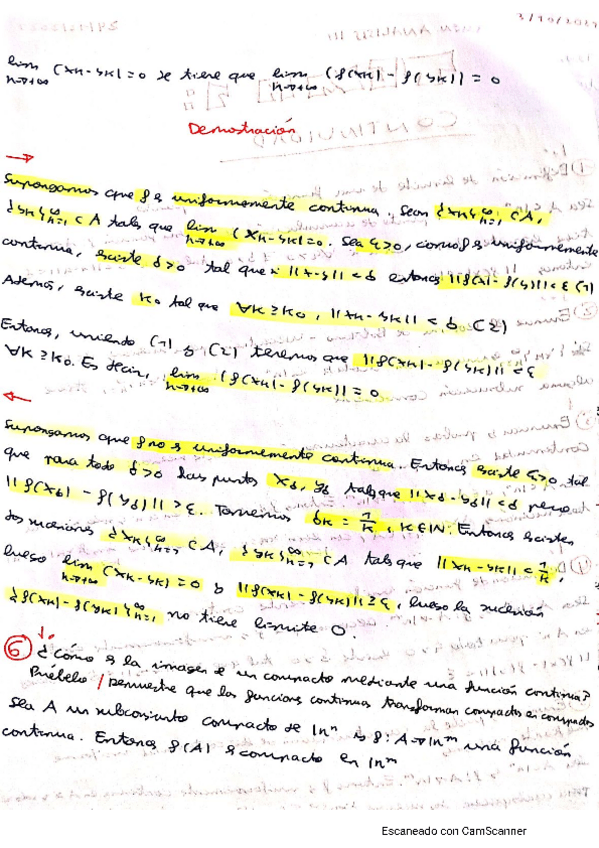 lim (xk - yk) = 0 se tiene que lim (f(xk) - f(yk)) = 0
n→+∞ n→+∞
Demostración
→
Supongamos que f es uniformemente continua. Sean {xk}∞k=1 ⊂ A,
{yk}∞k=1 ⊂ A tales que lim n→+∞ (xk - yk) = 0. Sea ε>0, como f es uniformemente
continua, existe δ>0 tal que si ||x-y|| < δ entonces ||f(x) - f(y)|| < ε (1)
Además, existe k0 tal que ∀k ≥ k0, ||xk - yk|| < δ (2)
Entonces, uniendo (1) y (2) tenemos que ||f(xk) - f(yk)|| < ε
∀k ≥ k0. Es decir, lim n→+∞ (f(xk) - f(yk)) = 0
←
Supongamos que f no es uniformemente continua. Entonces existe ε>0, tal
que para todo δ>0 hay puntos xδ, yδ tales que ||xδ - yδ|| < δ pero
||f(xδ) - f(yδ)|| > ε. Tomemos δk = 1/k, k∈IN. Entonces existen
dos sucesiones {xk}∞k=1 ⊂ A, {yk}∞k=1 ⊂ A tales que ||xk - yk|| < 1/k,
luego lim n→+∞ (xk - yk) = 0 y ||f(xk) - f(yk)|| ≥ ε, luego la sucesión
{f(xk) - f(yk)}∞k=1 no tiene límite 0.
6 ¿Cómo es la imagen de un compacto mediante una función continua?
Pruébelo / Demuestre que las funciones continuas transforman compactos en compactos
Sea A un subconjunto compacto de IRn y f: A→IRm una función
continua. Entonces f(A) es compacto en IRm
Escaneado con CamScanner